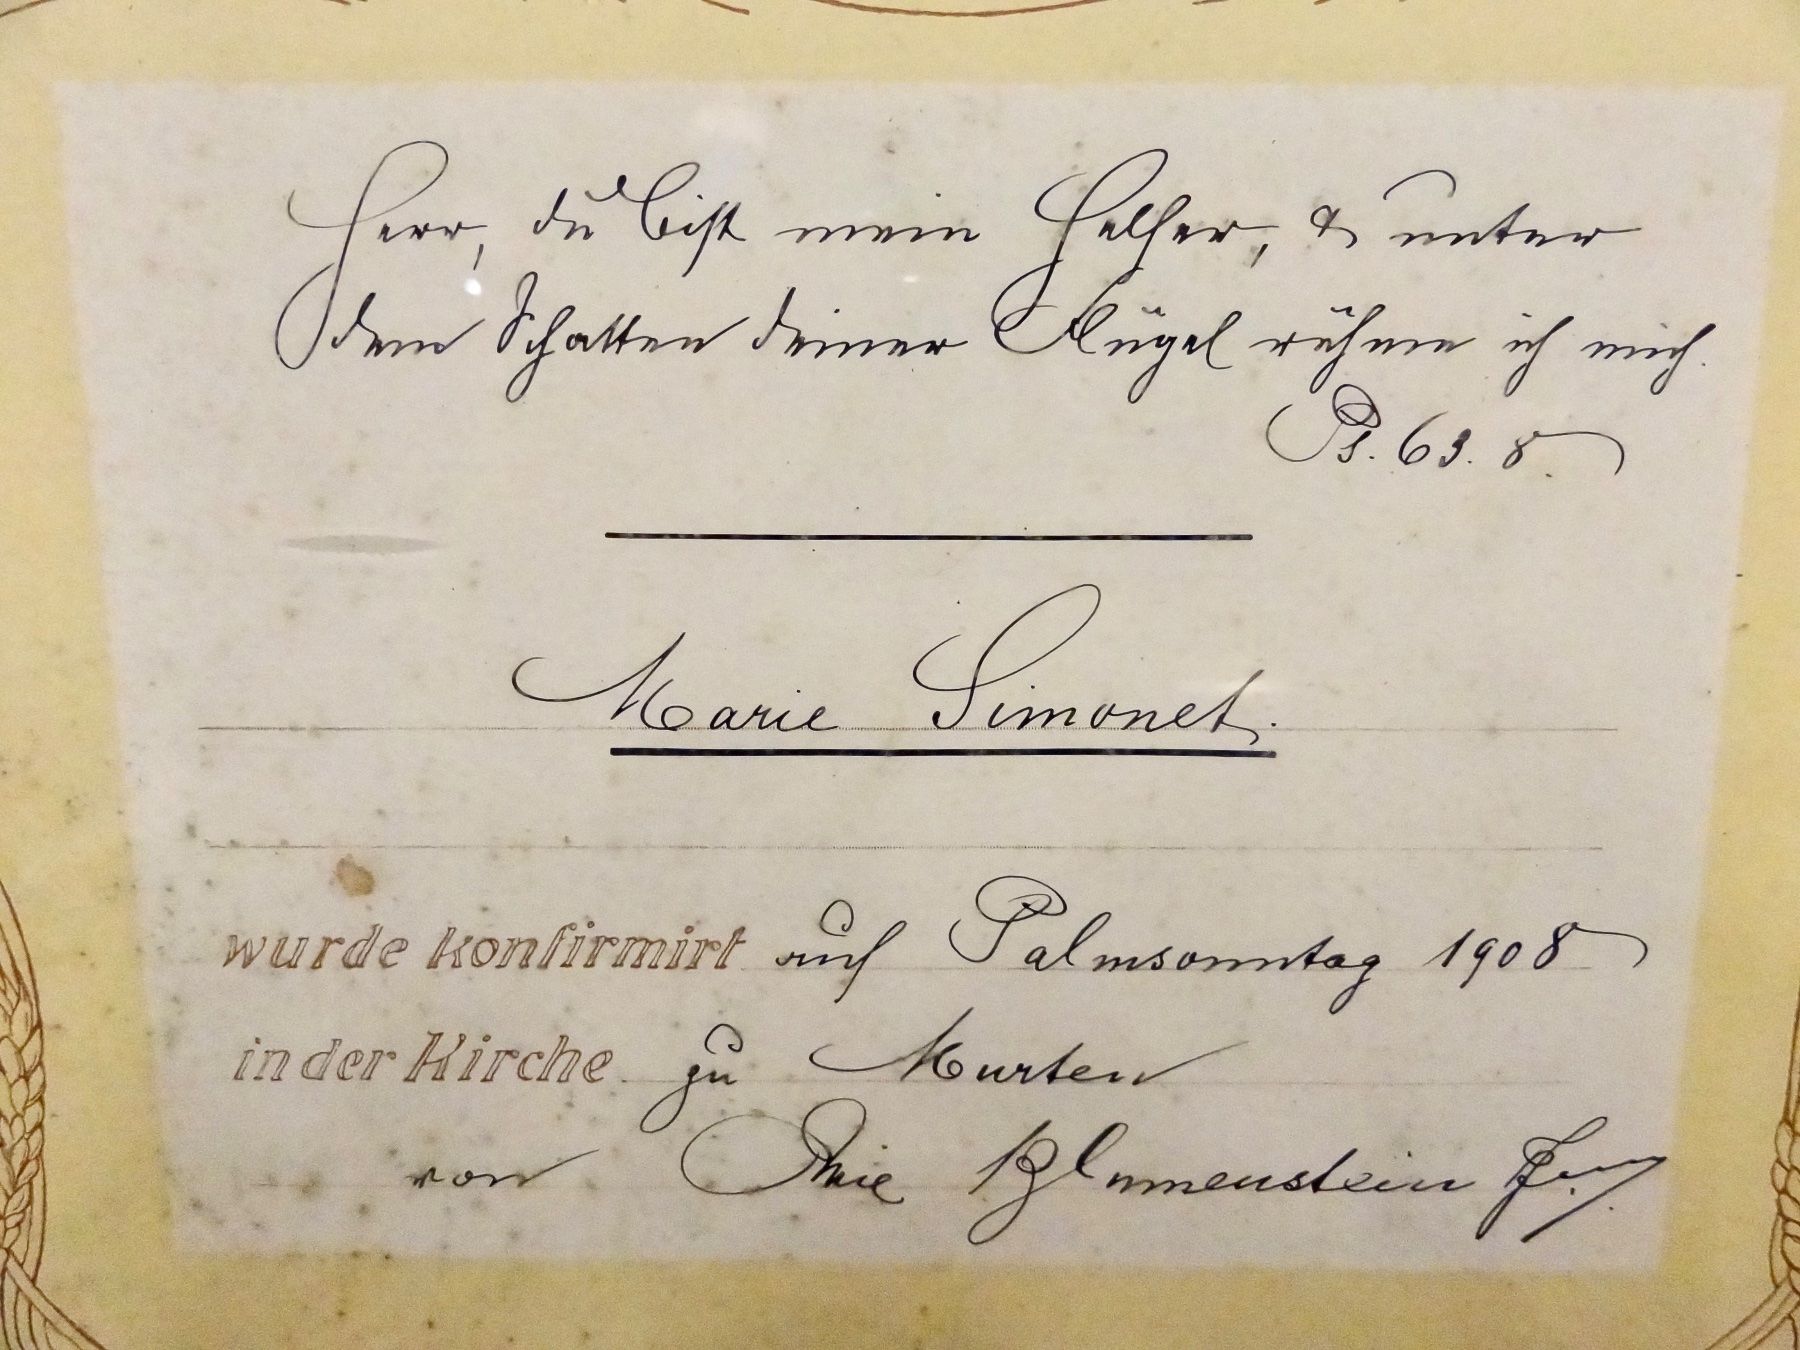 Herr, du bist mein Helfer, & unter
dem Schatten deiner Flügel rühme ich mich.
Ps. 63. 8.
Marie Simonet.
wurde konfirmirt auf Palmsonntag 1908
in der Kirche zu Murten
von Blumenstein